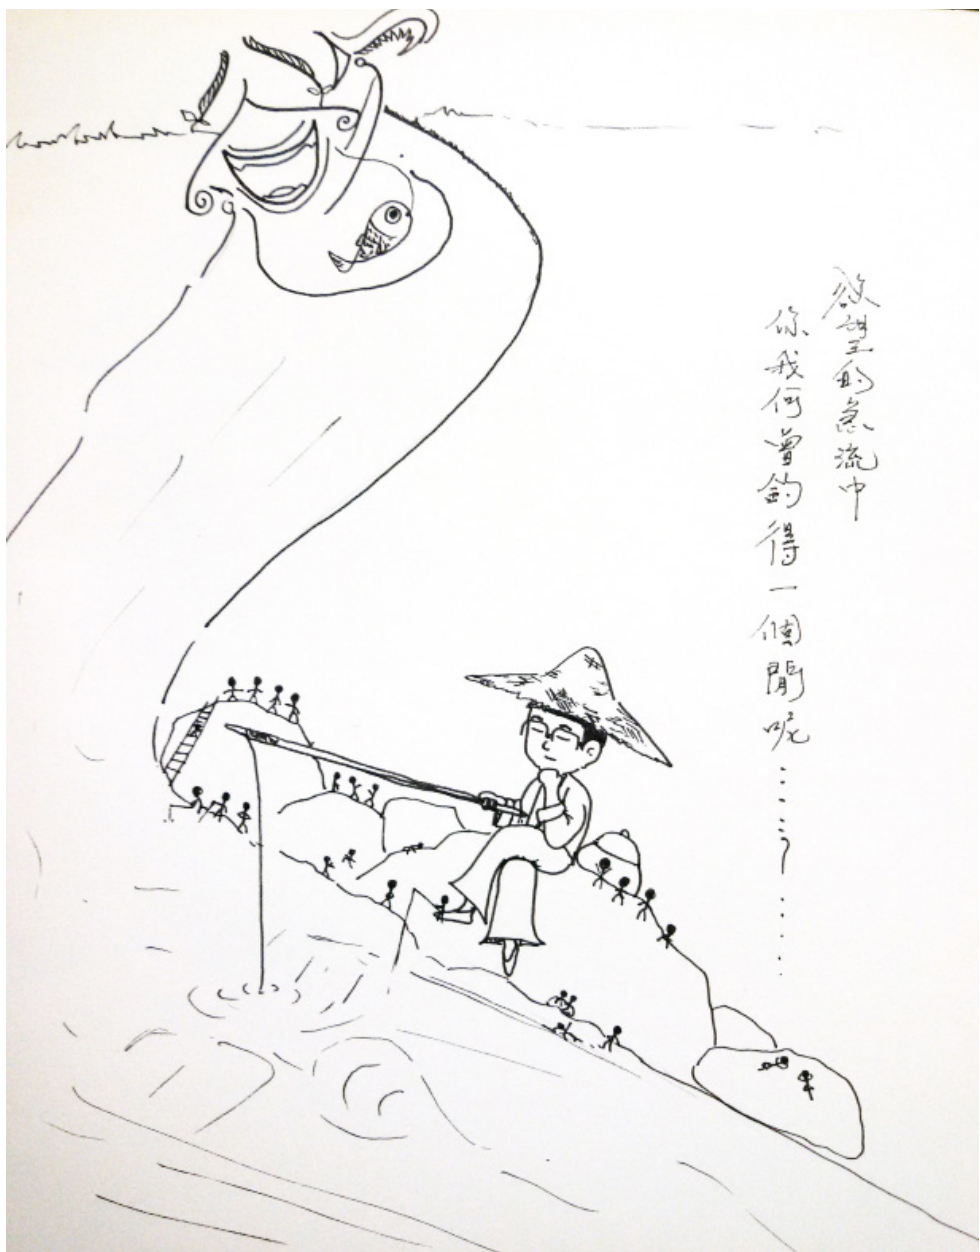 欲望的急流中
你我何曾釣得一個閒呢……，……